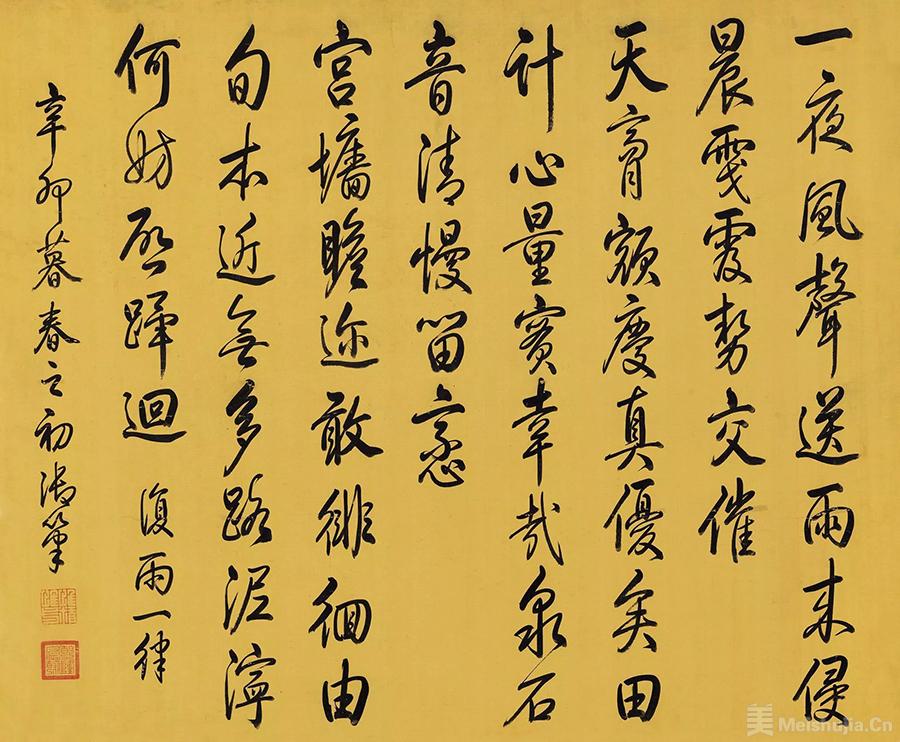 一夜風聲送雨来侵
晨勢交催
天膏額慶真優矣田
計心量實幸哉泉石
音清慢留戀
宮墻瞻迩敢徘徊由
旬本近無多路泥濘
何妨啓蹕迴 復雨一律
辛卯暮春之初御筆
美 Meishujia.Cn